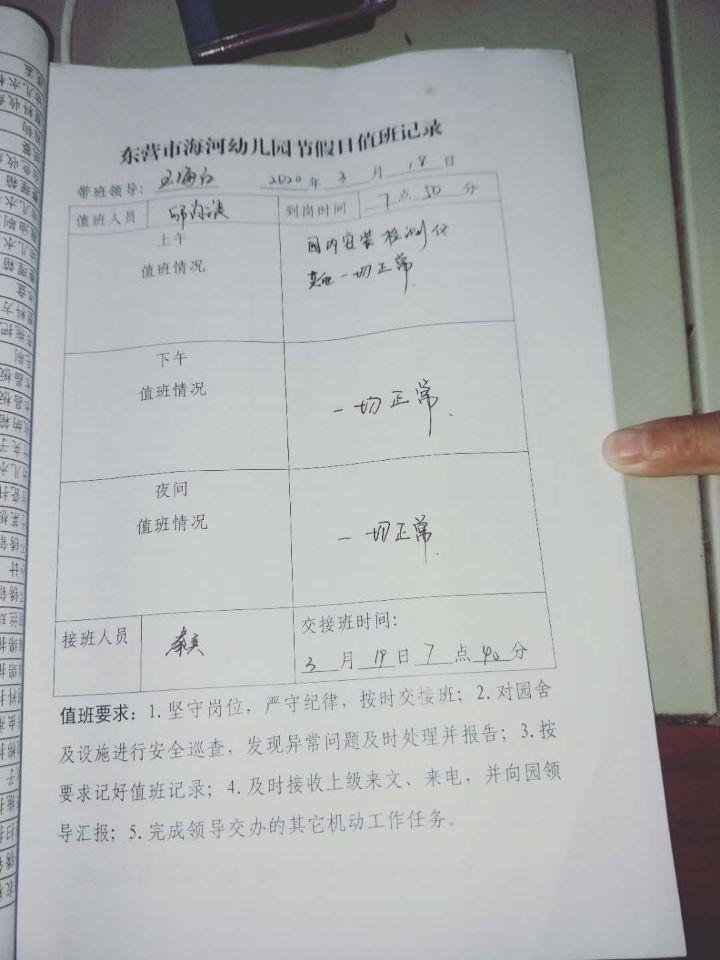 东营市海河幼儿园节假日值班记录
带班领导: 王海红 2020 年 3 月 18 日
值班人员 到岗时间 7 点 50 分
上午
值班情况
园内安装检测仪
其他一切正常.
下午
值班情况
一切正常.
夜间
值班情况
一切正常.
接班人员 交接班时间:
3 月 19 日 7 点 40 分
值班要求: 1. 坚守岗位, 严守纪律, 按时交接班; 2. 对园舍
及设施进行安全巡查, 发现异常问题及时处理并报告; 3. 按
要求记好值班记录; 4. 及时接收上级来文、来电, 并向园领
导汇报; 5. 完成领导交办的其它机动工作任务。